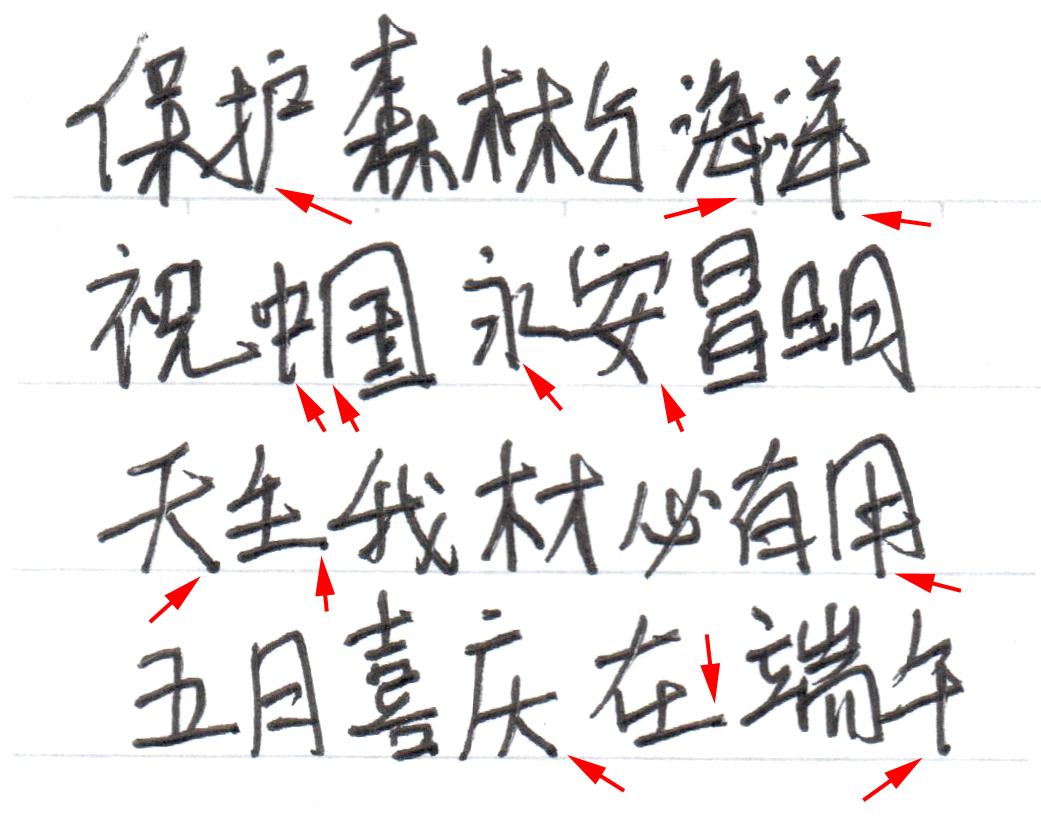 保护森林与海洋
祝中国永安昌明
天生我材必有用
五月喜庆在端午